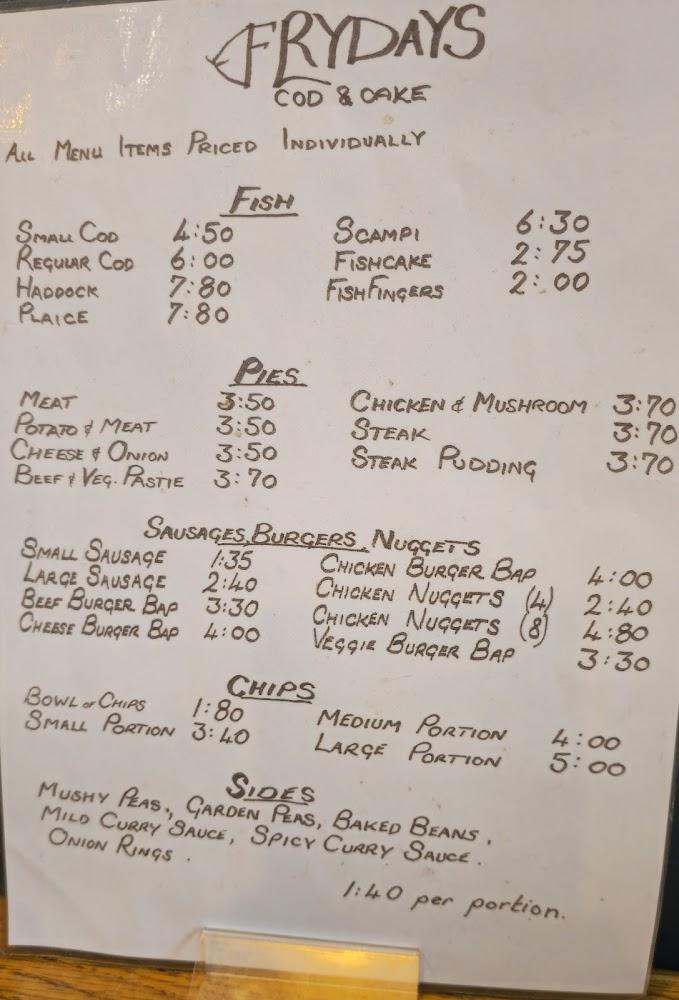 FRYDAYS
COD & CAKE
ALL MENU ITEMS PRICED INDIVIDUALLY
FISH
SMALL COD 4:50 SCAMPI 6:30
REGULAR COD 6:00 FISHCAKE 2:75
HADDOCK 7:80 FISHFINGERS 2:00
PLAICE 7:80
PIES
MEAT 3:50 CHICKEN & MUSHROOM 3:70
POTATO & MEAT 3:50 STEAK 3:70
CHEESE & ONION 3:50 STEAK PUDDING 3:70
BEEF & VEG. PASTIE 3:70
SAUSAGES, BURGERS, NUGGETS
SMALL SAUSAGE 1:35 CHICKEN BURGER BAP 4:00
LARGE SAUSAGE 2:40 CHICKEN NUGGETS (4) 2:40
BEEF BURGER BAP 3:30 CHICKEN NUGGETS (8) 4:80
CHEESE BURGER BAP 4:00 VEGGIE BURGER BAP 3:30
CHIPS
BOWL OF CHIPS 1:80 MEDIUM PORTION 4:00
SMALL PORTION 3:40 LARGE PORTION 5:00
SIDES
MUSHY PEAS, GARDEN PEAS, BAKED BEANS,
MILD CURRY SAUCE, SPICY CURRY SAUCE.
ONION RINGS.
1:40 per portion.